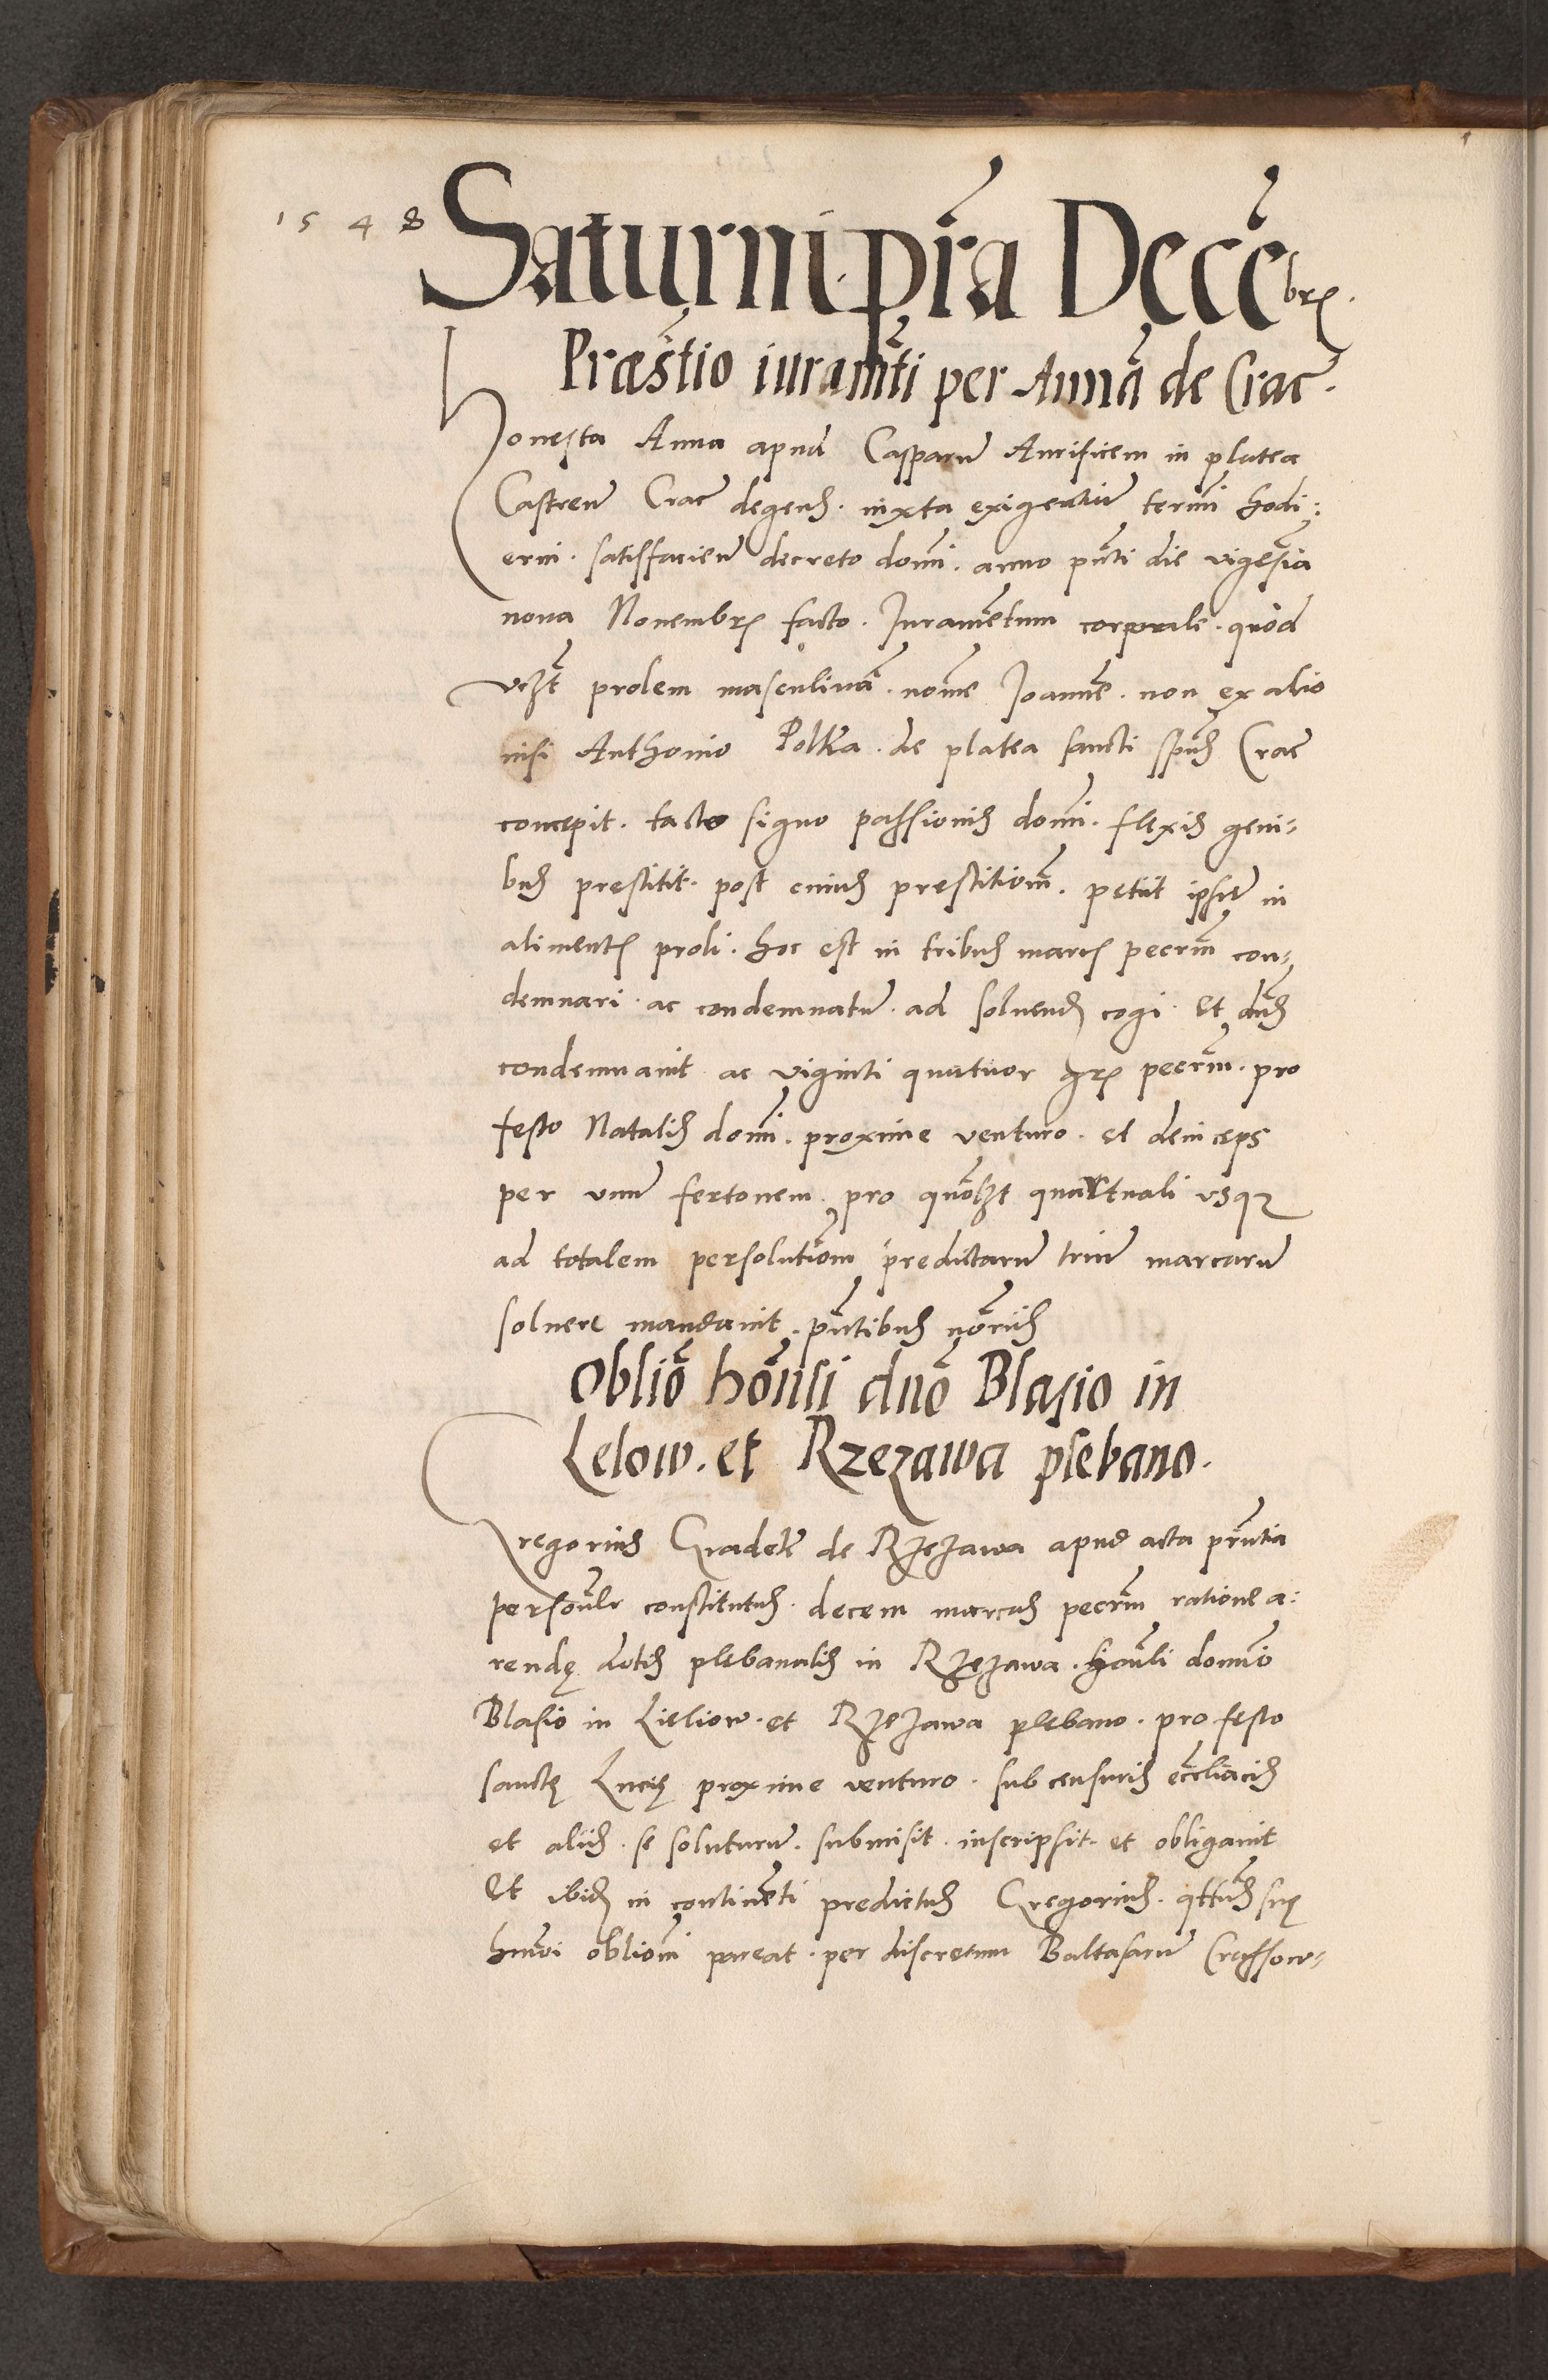 1548 Saturni prã Decẽbrꝭ.
Præstio iuramẽti per Annã de Crac̃.
Honesta Anna apud Casparũ Aurificem in platea
Castreñ Crac̃ degens. iuxta exigentiã termĩ hodi:
erni. satisfacieñ decreto domĩ. anno pñti die vigesĩa
nona Nouembrꝭ facto. Iuramẽtum corporale. quod
vꝫt prolem masculinã. nomĩe Joannẽ. non ex alio
nisi Anthonio Polka. de platea sancti spũs Crac̃
concepit. tacto signo passionis domĩ. flexis geni-
bus prestitit. post cuius prestitionẽ. petiit ipsũ in
alimentꝭ proli. hoc est in tribus marcꝭ pecũm con-
demnari. ac condemnatũ. ad soluendꝭ cogi. Et dñs
condemnauit ac viginti quatuor grꝭ pecũm. pro
festo Natalis domĩ. proxime venturo. et deinceps
per vnũ fertonem. pro quõlꝫt quartuali vsqꝫ
ad totalem persolutiõm predictarũ triũ marcarũ
soluere mandauit. pñtibus nõrijs
Obliõ hõnẽsi dnõ Blasio in
Lelow. et Rzezawa plebano.
Gregorius Gradek de Rzezawa apud acta prñtia
persoñlr constitutus. decem marcas pecũm ratione a:
rendę dotis plebanalis in Rzezawa. hõnli domño
Blasio in Lieliow. et Rzezawa plebano. pro festo
sanctę Lucię proxime venturo. sub censuris eccl̃iacis
et aliis. se soluturũ. submisit. inscripsit. et obligauit
Et ibidꝫ in continẽti predictus Gregorius. qttũs suę
hmõi obliõni pareat. per discretum Baltasarũ Crassow-